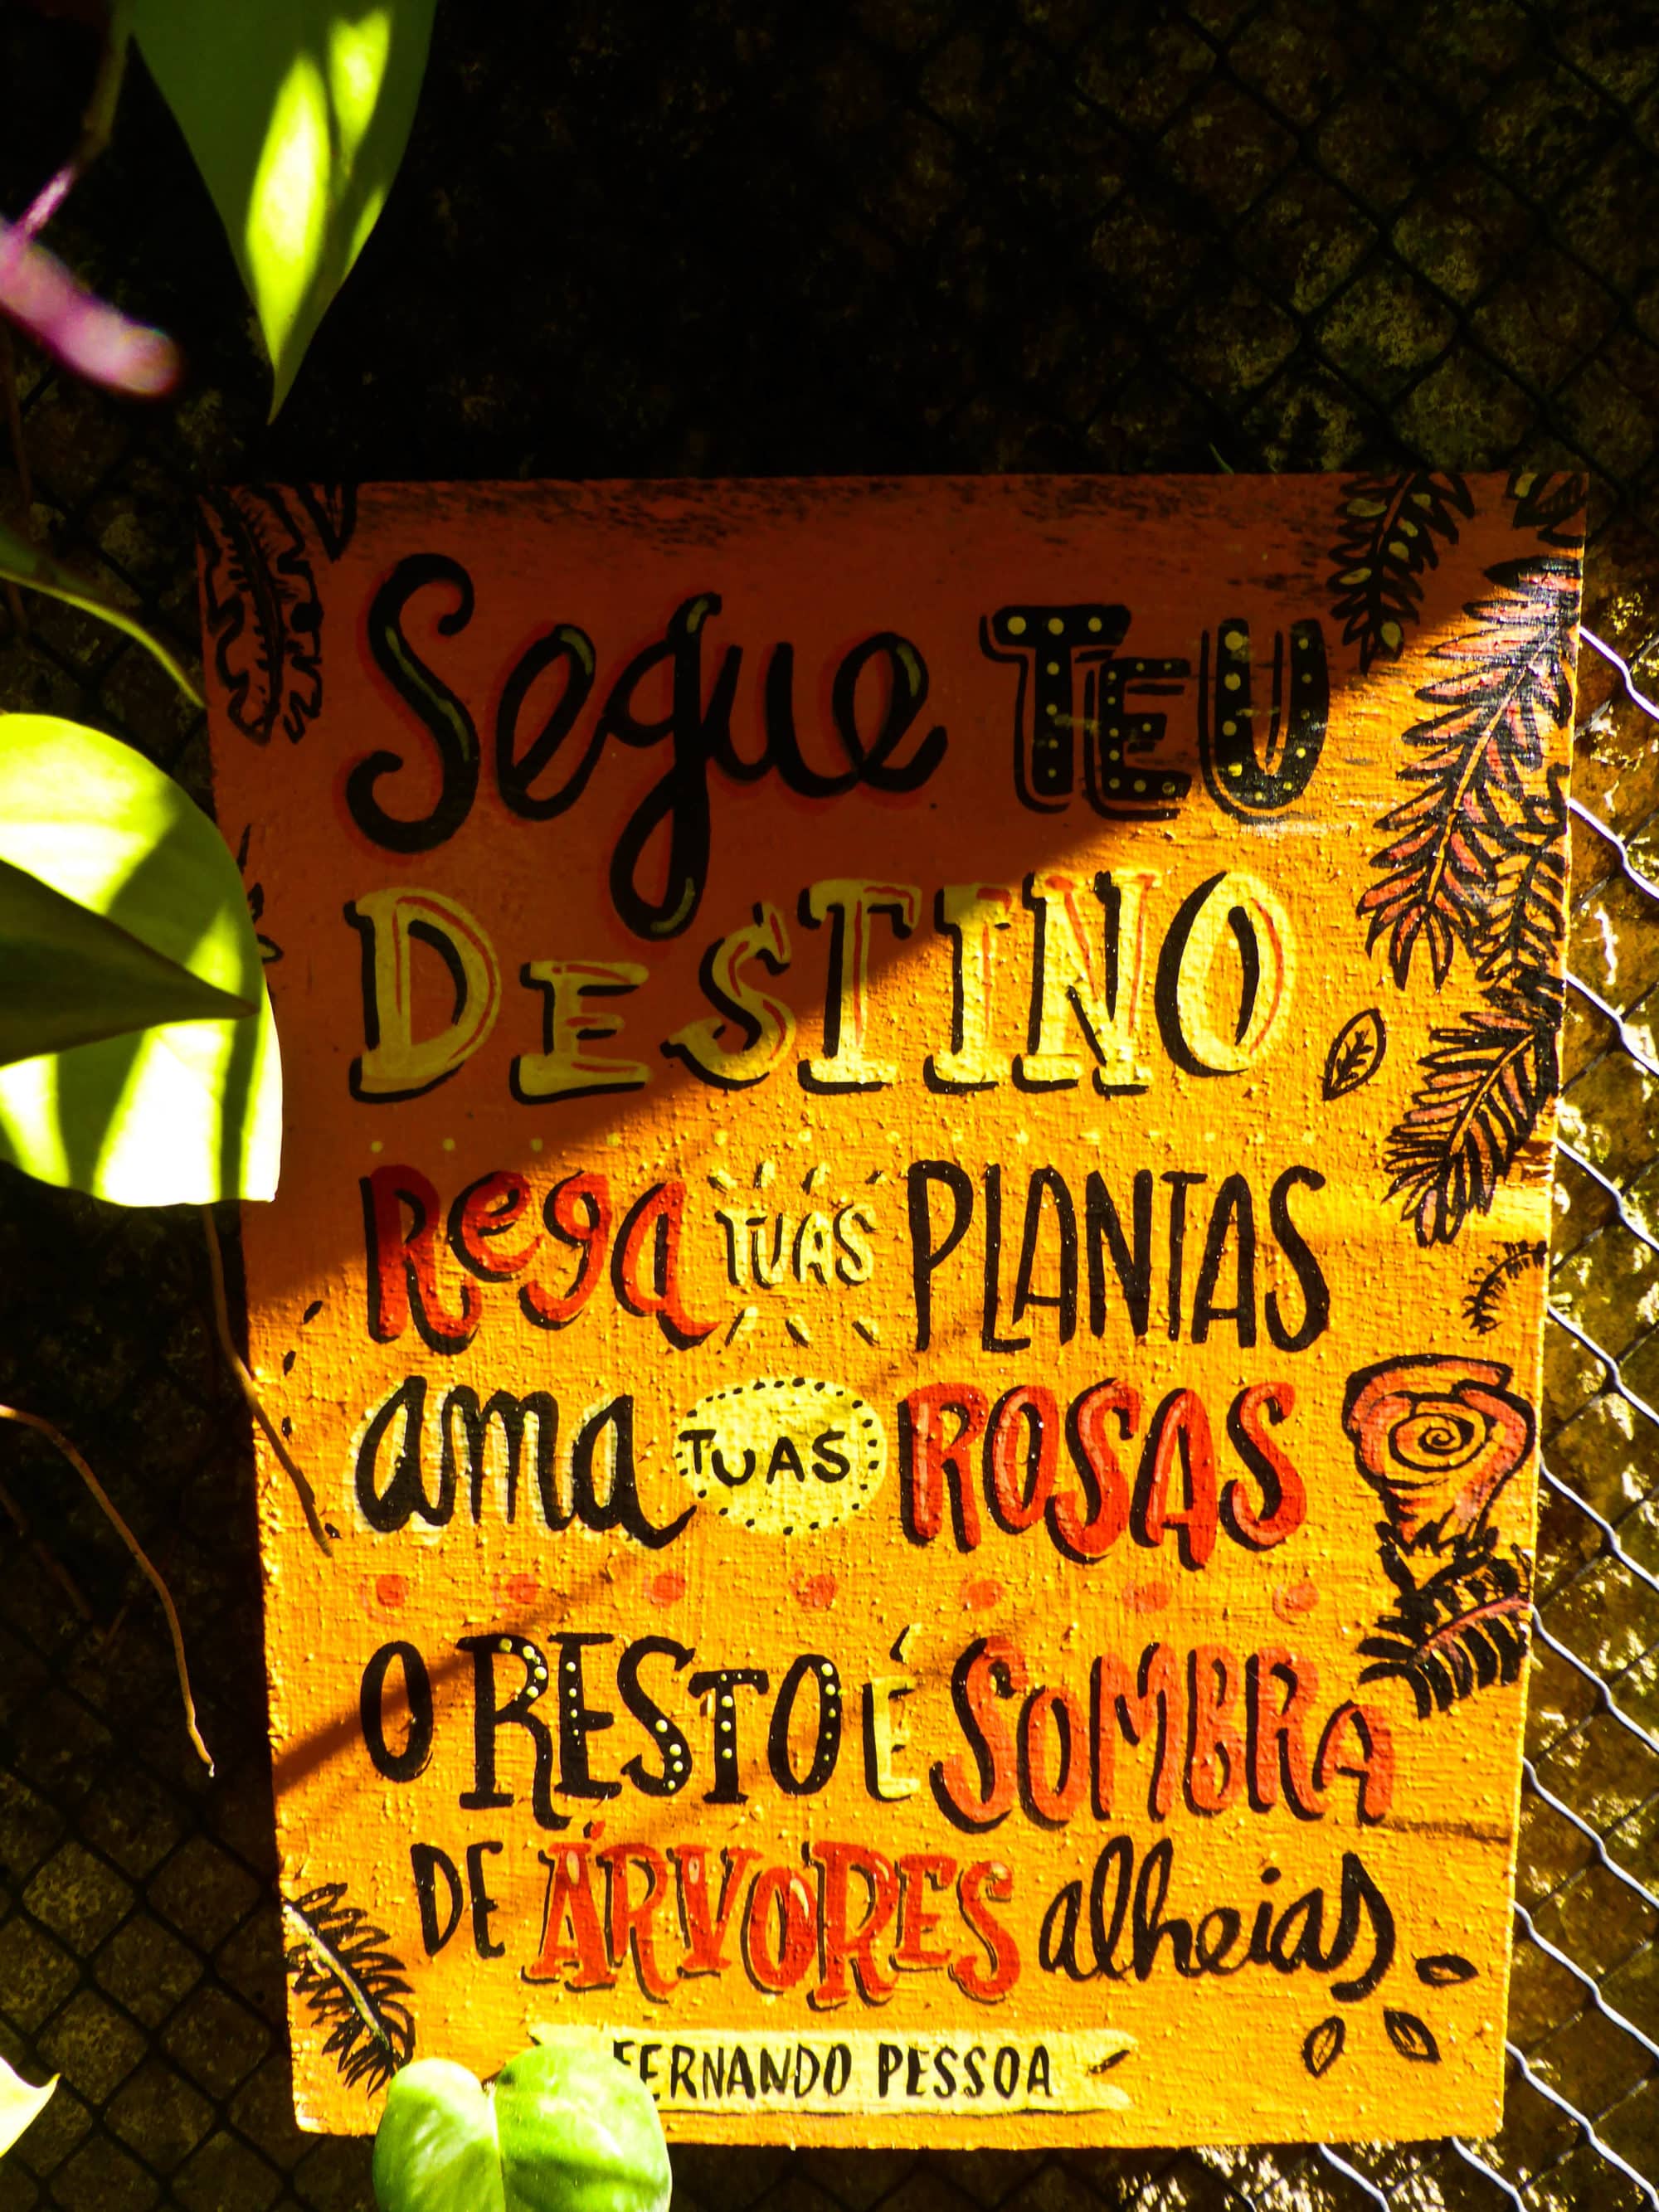 Segue TEU
DESTINO
Rega TUAS PLANTAS
ama TUAS ROSAS
O RESTO É SOMBRA
DE ÁRVORES alheias
FERNANDO PESSOA